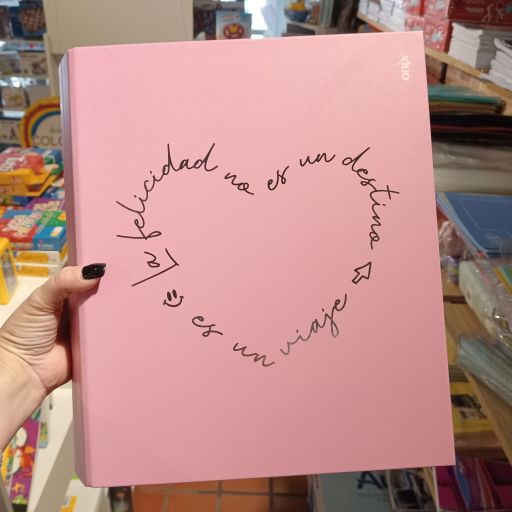 onix
La felicidad no es un destino
es un viaje